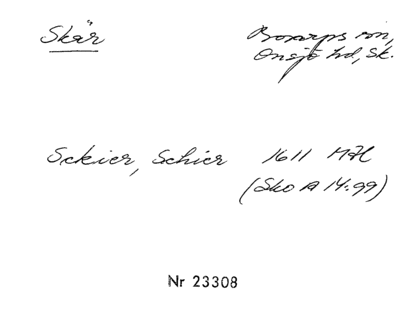 Skär
Boxarps sn,
Onsjö hd, Sk.
Sckier, Schier 1611 MHL
(Sko A 14:99)
Nr 23308